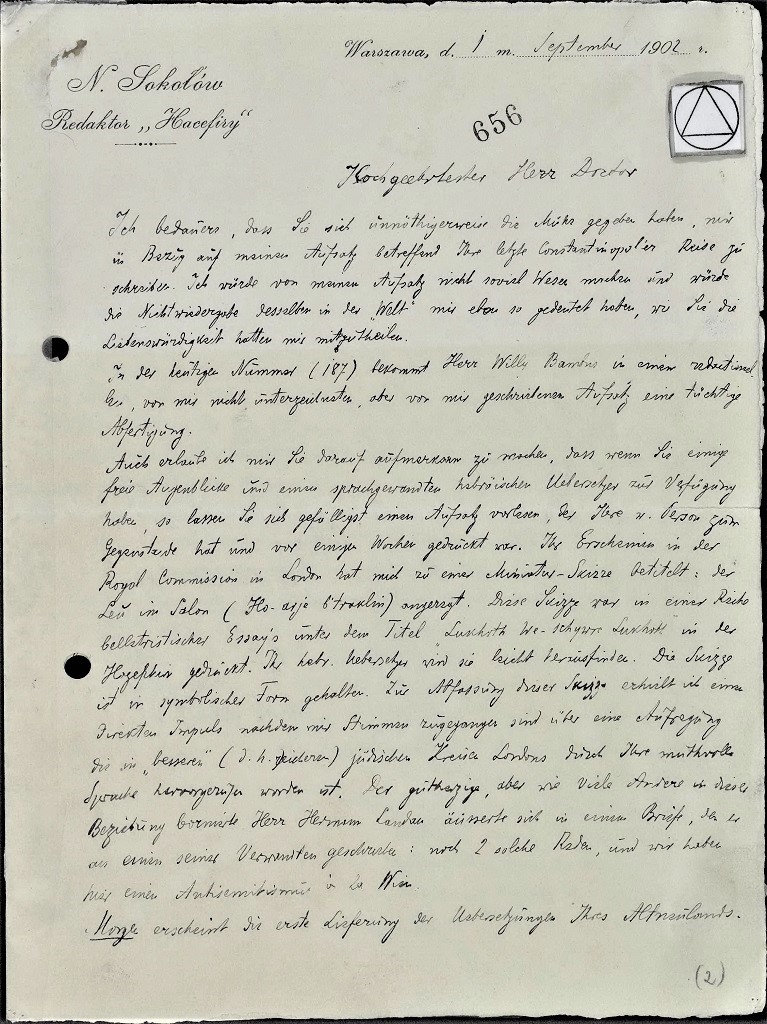 Warszawa, d. 1 m. September 1902 r.
N. Sokołów
Redaktor „Hacefiry"
656
Hochgeehrtester Herr Doctor
Ich bedauere, dass Sie sich unnöthigerweise die Mühe gegeben haben, mir
in Bezug auf meinen Aufsatz betreffend Ihre letzte Constantinopoler Reise zu
schreiben. Ich würde von meinem Aufsatz nicht soviel Wesen machen und würde
die Nichtwiedergabe desselben in der „Welt" mir eben so gedeutet haben, wie Sie die
Liebenswürdigkeit hatten mir mitzutheilen.
In der heutigen Nummer (187) bekommt Herr Willy Bambus in einem redactionel-
len, von mir nicht unterzeichneten, aber von mir geschriebenen Aufsatz eine tüchtige
Abfertigung.
Auch erlaube ich mir Sie darauf aufmerksam zu machen, dass wenn Sie einige
freie Augenblicke und einen sprachgewandten hebräischen Uebersetzer zur Verfügung
haben, so lassen Sie sich gefälligst einen Aufsatz vorlesen, der Ihre w. Person zum
Gegenstande hat und vor einigen Wochen gedruckt war. Ihr Erscheinen in der
Royal Commission in London hat mich zu einer Miniatur-Skizze betitelt: der
Leu im Salon (Ho-arje b'traklin) angeregt. Diese Skizze war in einer Reihe
belletristischer Essay's unter dem Titel Luchoth we-schywre Luchoth in der
Hazefira gedruckt. Ihr hebr. Uebersetzer wird sie leicht herausfinden. Die Skizze
ist in symbolischer Form gehalten. Zur Abfassung dieser Skizze erhielt ich einen
direkten Impuls nachdem mir Stimmen zugegangen sind über eine Aufregung
die in „besseren" (d. h. niederen) jüdischen Kreisen Londons durch Ihre muthvolle
Sprache hervorgerufen worden ist. Der gutherzige, aber wie viele Andere in dieser
Beziehung bornierte Herr Hermann Landau äusserte sich in einem Briefe, den er
an einen seiner Verwandten geschrieben: noch 2 solche Reden, und wir haben
hier einen Antisemitismus à la Wien.
Morgen erscheint die erste Lieferung der Uebersetzungen Ihres Altneulands.
(2)